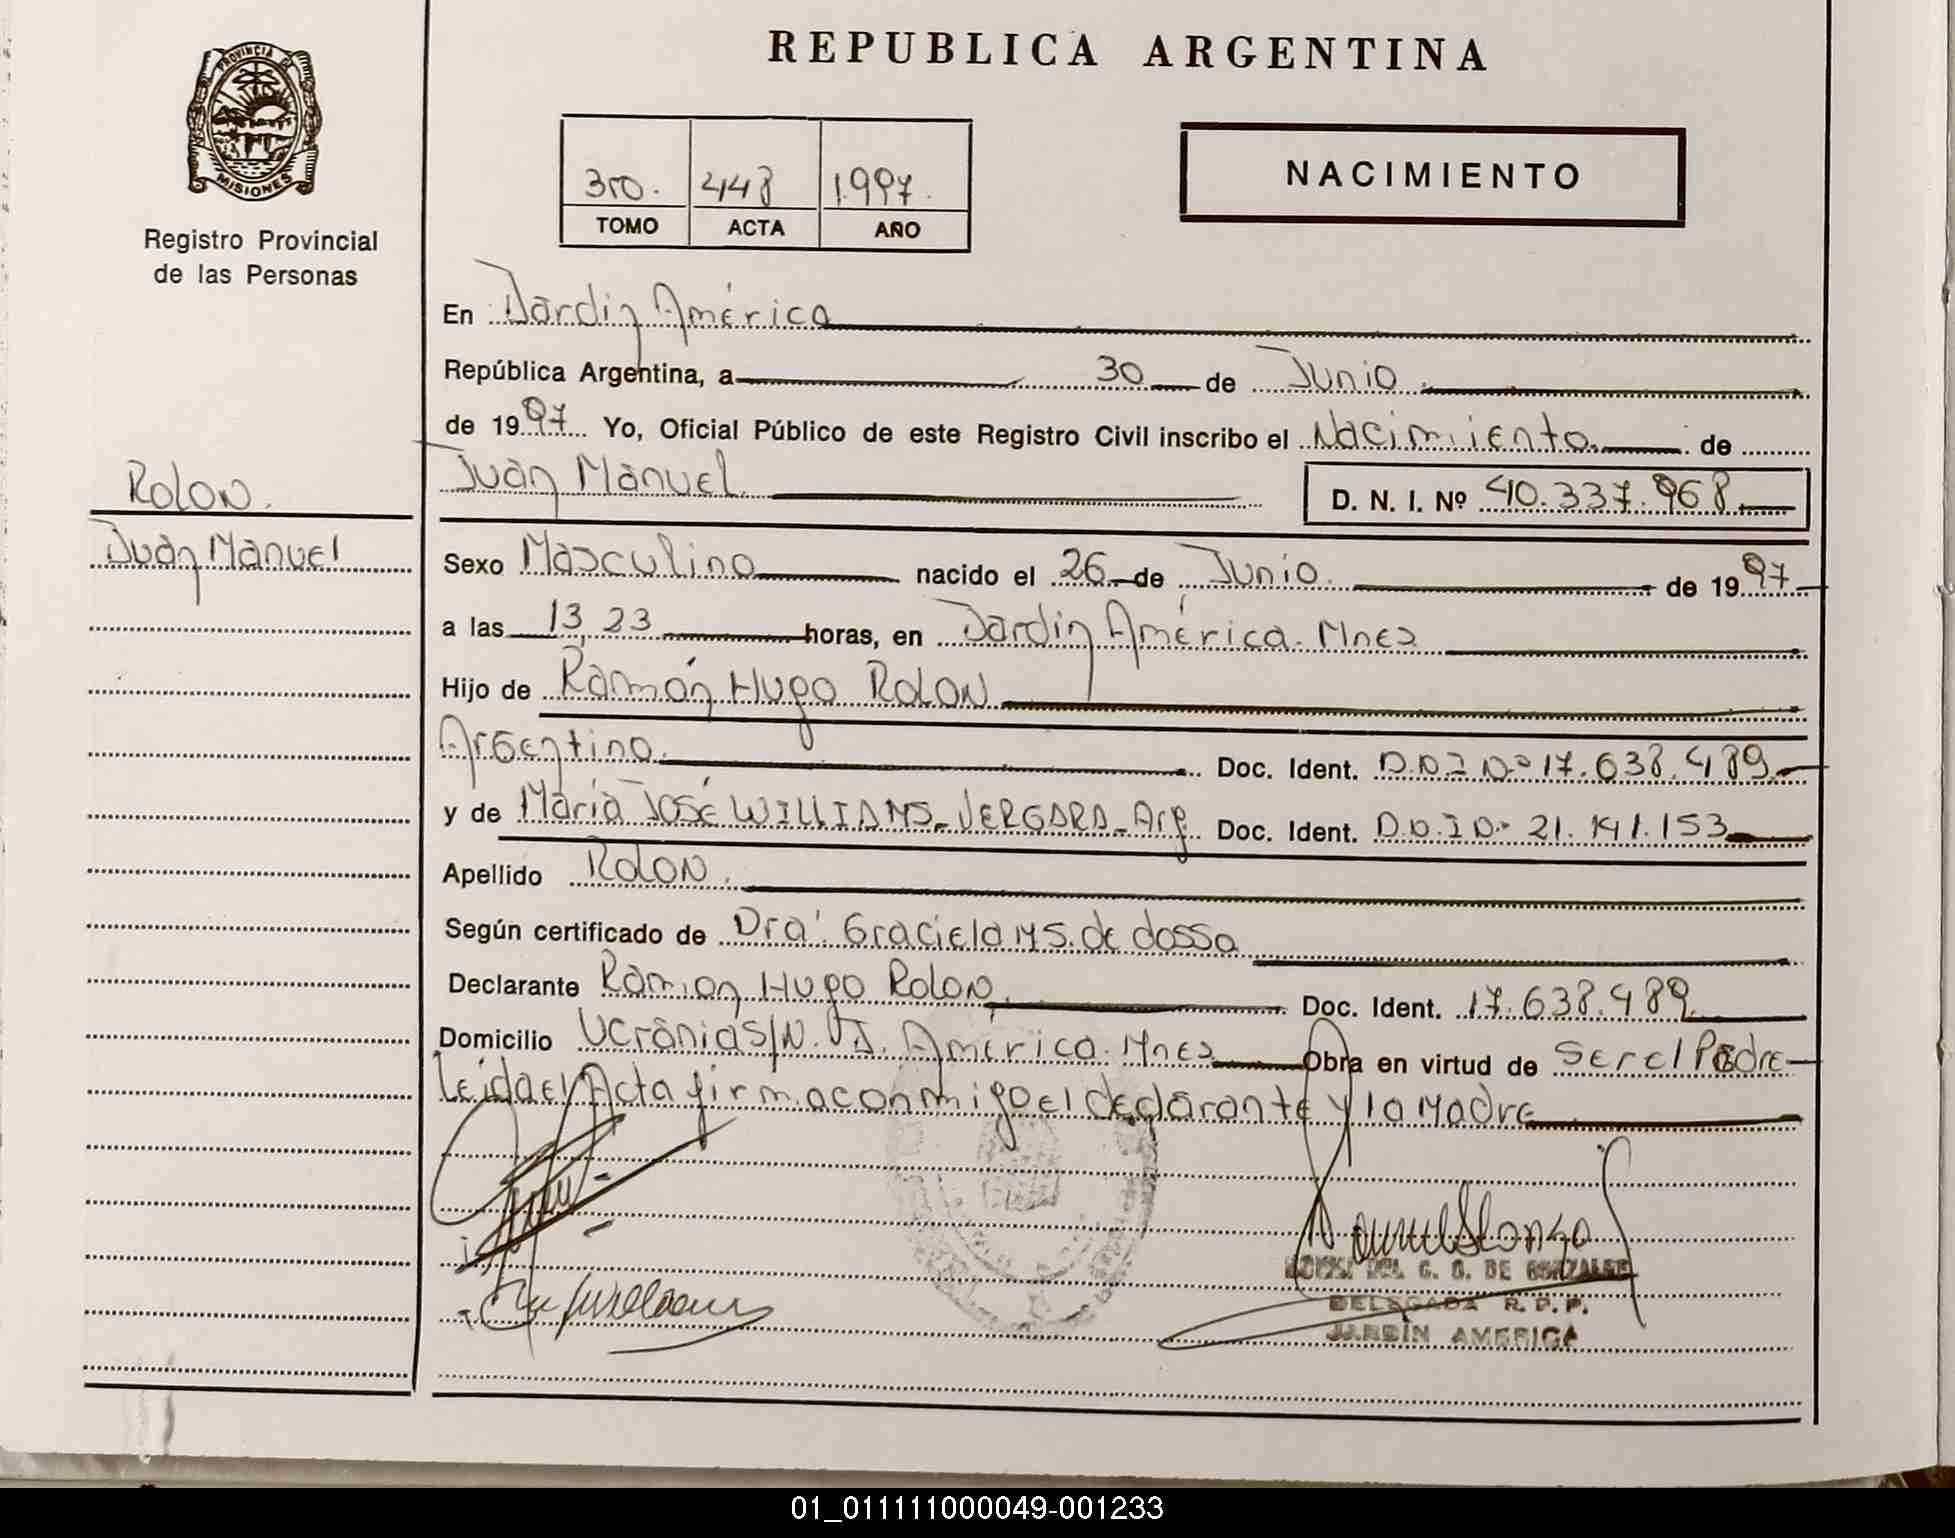 REPUBLICA ARGENTINA
PROVINCIA DE
MISIONES
Registro Provincial
de las Personas
3ro. 448 1.997.
TOMO ACTA AÑO
NACIMIENTO
En Jardin América
República Argentina, a 30 de Junio
de 1997 Yo, Oficial Público de este Registro Civil inscribo el Nacimiento de
Juan Manuel D. N. I. Nº 40.337.968
Rolon.
Juan Manuel
Sexo Masculino nacido el 26 de Junio. de 1997
a las 13,23 horas, en Jardin América. Mnes
Hijo de Ramón Hugo Rolon
Argentino. Doc. Ident. D.N.I Nº 17.638.489
y de María José WILLIAMS-VERGARA-Arg Doc. Ident. D.N.I Nº 21.141.153
Apellido Rolon.
Según certificado de Dra. Graciela M S. de dossa
Declarante Ramon Hugo Rolon Doc. Ident. 17.638.489
Domicilio Ucrania S/N. J. América. Mnes Obra en virtud de ser el Padre
Leida el Acta firma conmigo el declarante y la Madre
DEL C. G. DE GONZALEZ
DELEGADA R. P. P.
JARDIN AMERICA
01_011111000049-001233